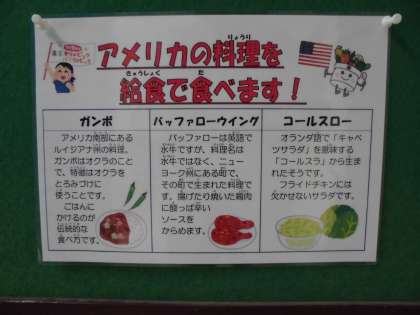 りょうり
アメリカの料理を
きゅうしょく た
給食で食べます！
ガンボ
アメリカ南部にある
ルイジアナ州の料理。
ガンボはオクラのこと
で、特徴はオクラを
とろみづけに
使うことです。
ごはんに
かけるのが
伝統的な
食べ方です。
バッファローウイング
バッファローは英語で
水牛ですが、料理名は
水牛ではなく、ニュー
ヨーク州にある町で、
その町で生まれた料理で
す。揚げたり焼いた鶏肉
に酸っぱ辛い
ソースを
からめます。
コールスロー
オランダ語で「キャベ
ツサラダ」を意味する
「コールスラ」から生ま
れたそうです。
フライドチキンには
欠かせないサラダです。